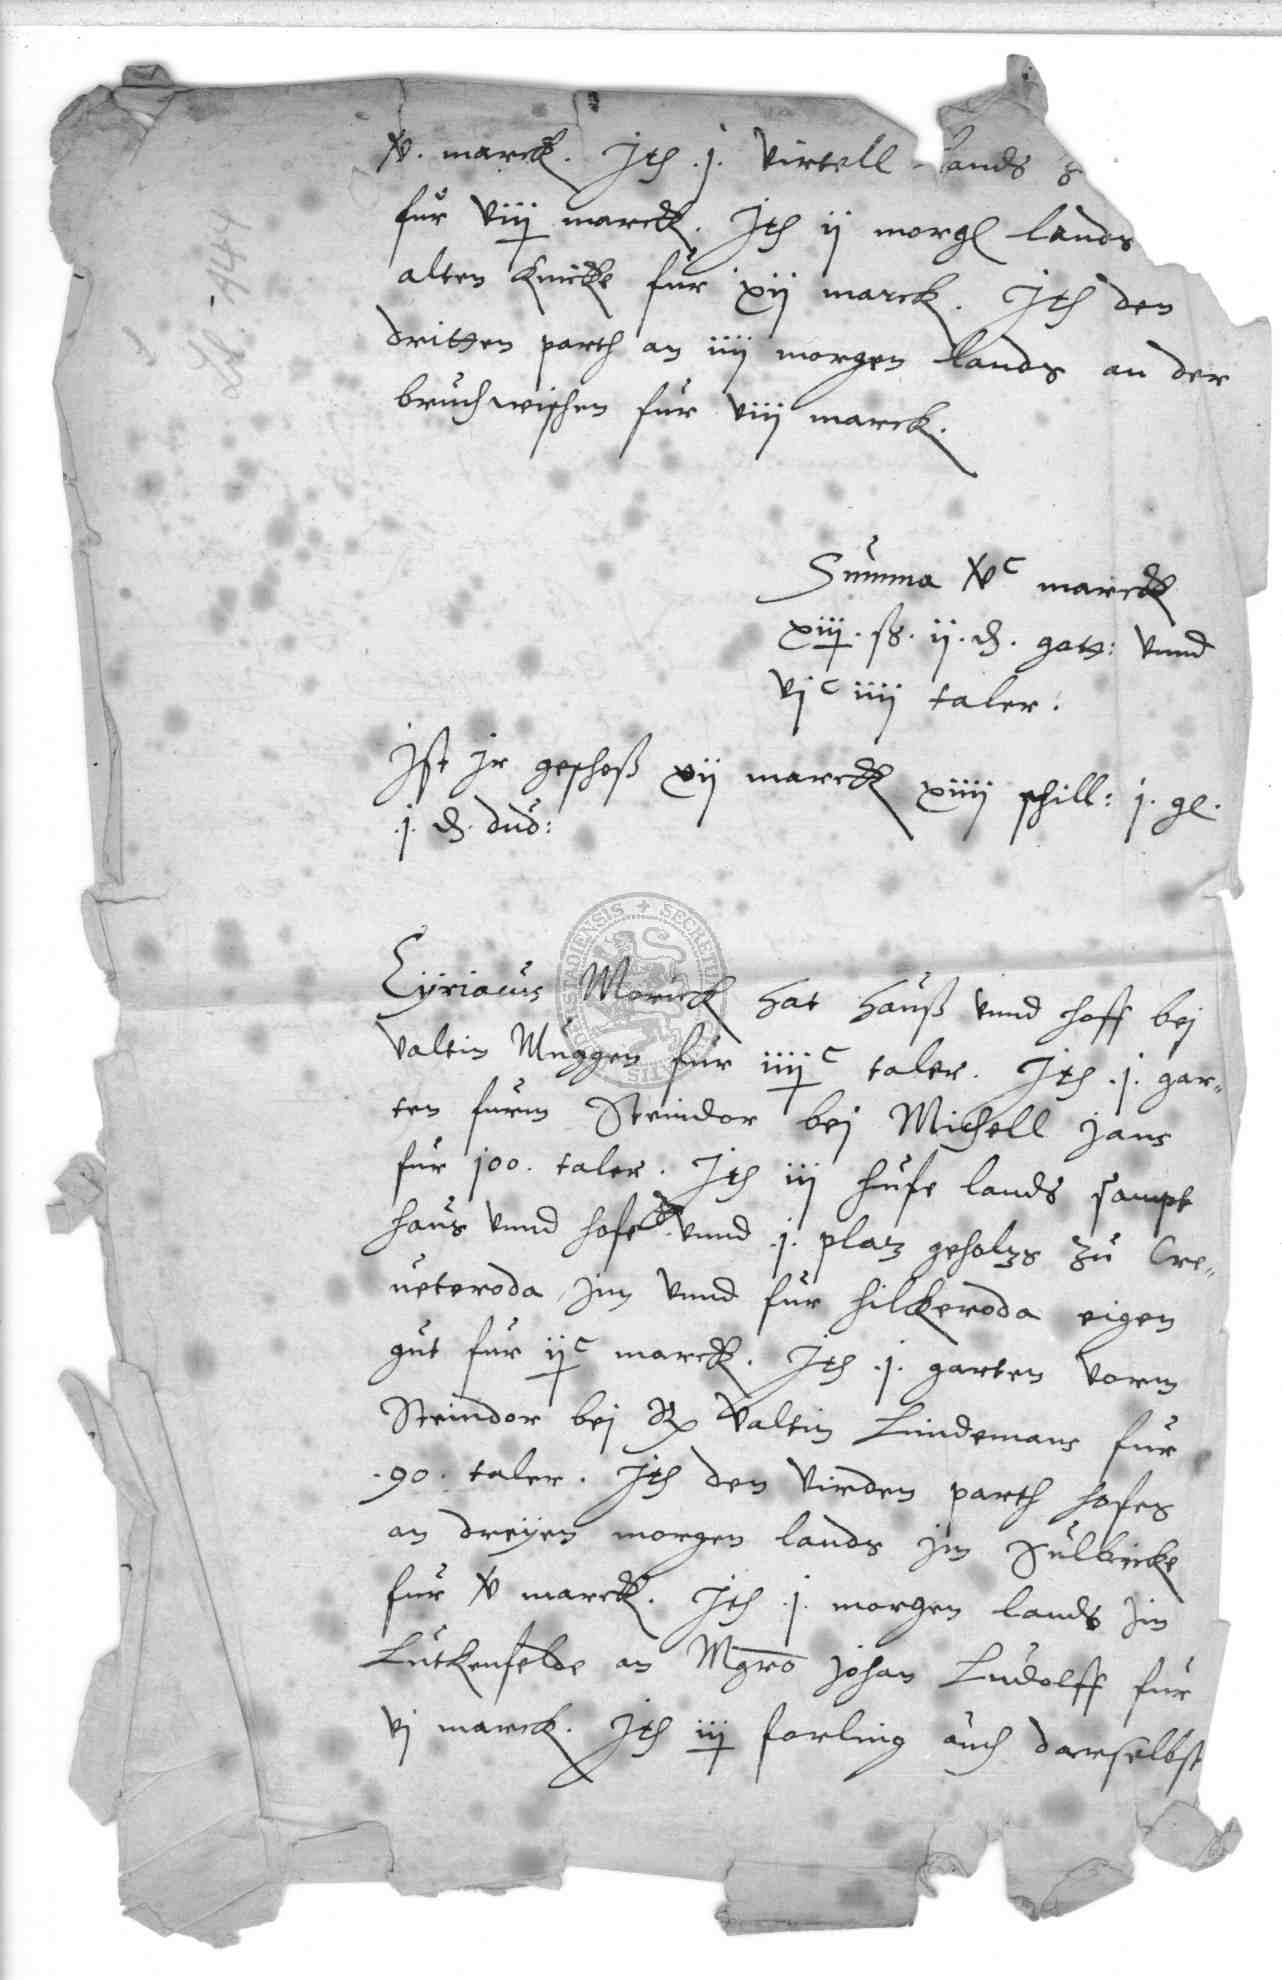 xv. marck. Jtem .j. virtell lands
fur viij marck. Jtem ij morgen lands
alten knicke fur xij marck. Jtem den
dritten parth an iiij morgen lands an der
bruchwischen fur viij marck.
Summa xvᶜ marck
xiij. ß. ij. ₰. gott: vnnd
vjᶜ iiij taler.
Jst jr geschoß xij marck xiiij schill: j. gl.
.j. ₰. dud:
Cyriacus Morick hat hauß vnnd hoff bej
valtin Muggen fur iiijᶜ taler. Jtem .j. gar-
ten furm Steindor bej Michell Jans
fur 100. taler. Jtem iij hufe lands sampt
haus vnnd hofe vnnd .j. platz geholtzs zu Cre-
ueteroda Jm vnnd fur hilckeroda eigen
gut fur ijᶜ marck. Jtem .j. garten vorm
Steindor bej Valtin Lindemans fur
.90. taler. Jtem den virden parth hofes
an dreyen morgen lands jm Sulbicke
fur xv marck. Jtem .j. morgen lands Jm
Lutkenfelde an Mgro Johan Ludolff fur
vj marck. Jtem iij forling auch darselbst